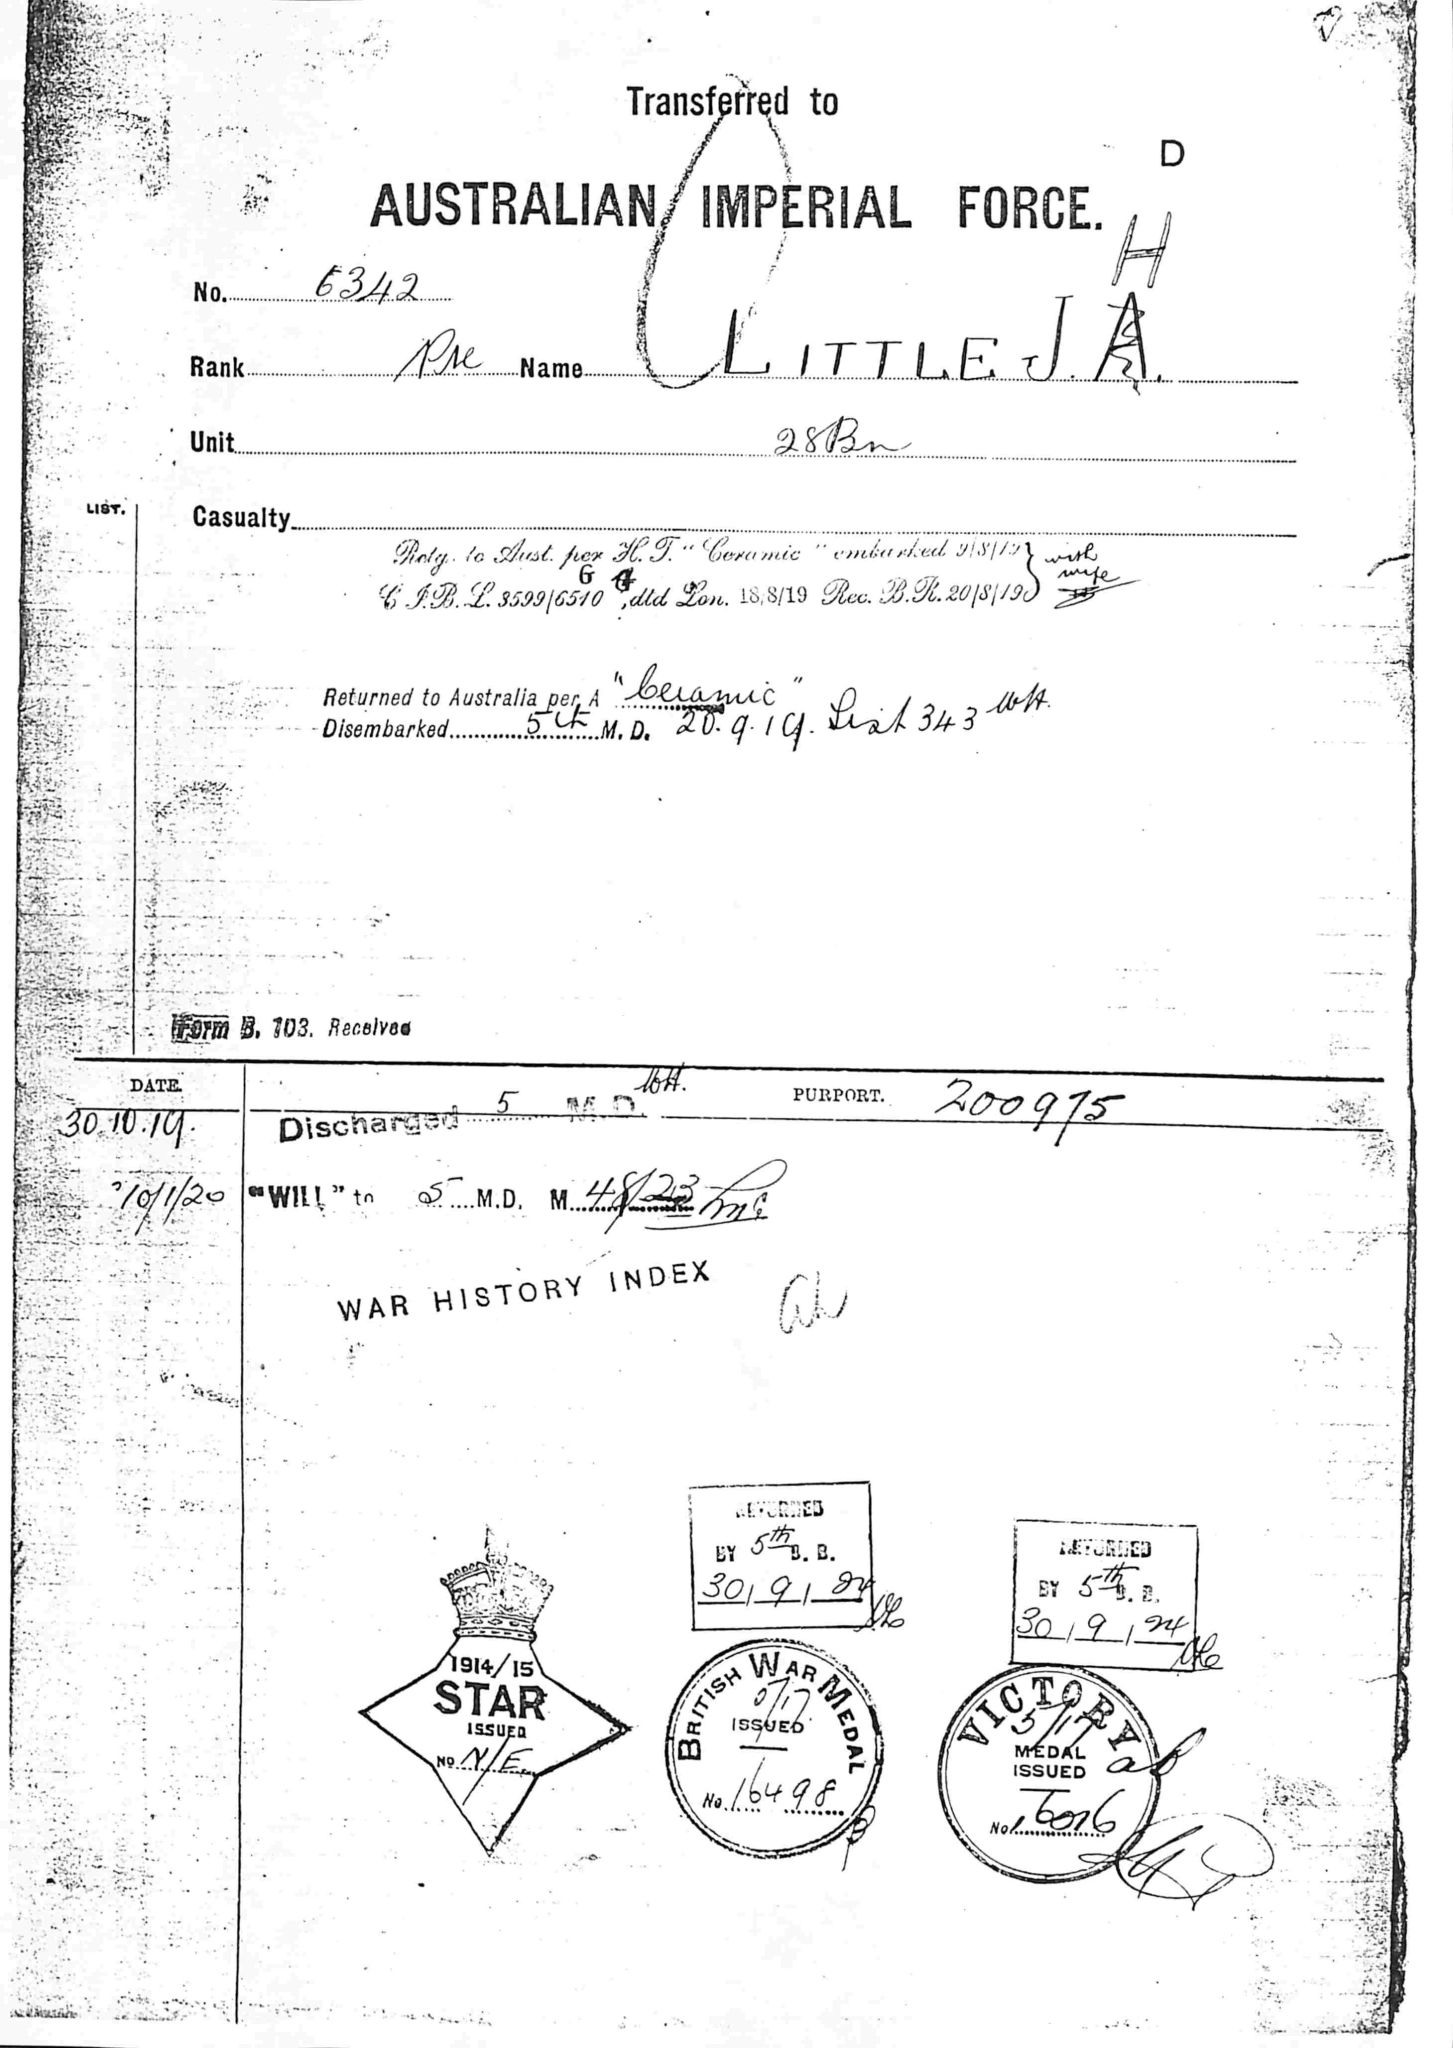 Transferred to
D
AUSTRALIAN IMPERIAL FORCE.
H
No. 6342
Rank Pte Name LITTLE J. A.
Unit 28Bn
LIST.
Casualty
Retg. to Aust. per H.T. "Ceramic" embarked 9/8/19 } with wife
C I.B. L. 3599/6510 G, dtd Lon. 18/8/19 Rec. B.R. 20/8/19
Returned to Australia per A "Ceramic"
Disembarked 5th M. D. 20.9.19. List 343 WH.
Form B. 103. Received
DATE. PURPORT. 200975
30.10.19. Discharged 5 M.D. WH.
10/1/20 "WILL" to 5 M.D. M. 48/23
WAR HISTORY INDEX
RETURNED
BY 5th B. B.
30/9/24
RETURNED
BY 5th B. B.
30/9/24
1914/15
STAR
ISSUED
No N/E.
BRITISH WAR MEDAL
ISSUED
No 16498
VICTORY
5/17
MEDAL
ISSUED
No 16016